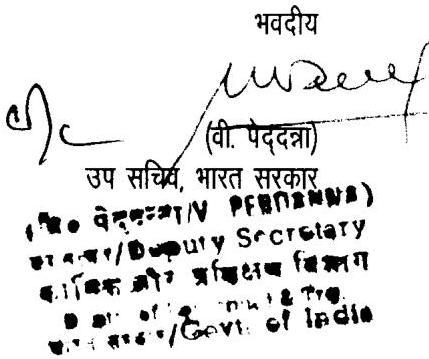 भवदीय
(वी. पेद्दन्ना)
उप सचिव, भारत सरकार
/V PEDDANNA)
/Deputy Secretary
कार्मिक और प्रशिक्षण विभाग
& Trg.
/Govt. of India